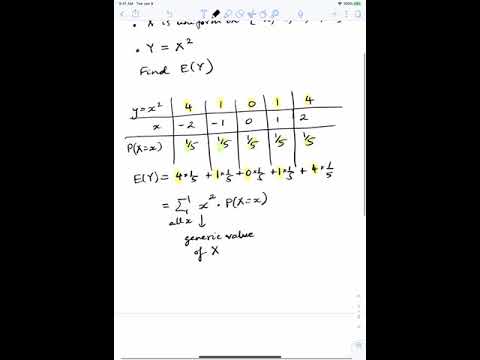 9:41 AM Tue Jan 9
• X is uniform in
• Y = X²
Find E(Y)
y=x² 4 1 0 1 4
x -2 -1 0 1 2
P(X=x) 1/5 1/5 1/5 1/5 1/5
E(Y)= 4*1/5 + 1*1/5 + 0*1/5 + 1*1/5 + 4*1/5
= Σ x² • P(X=x)
all x ↓
generic value
of X